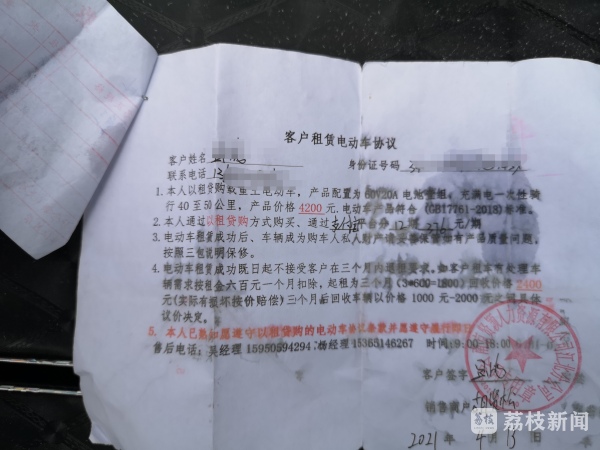 客户租赁电动车协议
客户姓名 身份证号码
联系电话
1. 本人以租赁购载重王电动车，产品配置为60V20A电池 组，充满电一次性骑
行40至50公里，产品价格4200元.电动车产品符合（GB17761-2018)标准。
2. 本人通过以租赁购方式购买、通过 平台分12期 276元/期
3. 电动车租赁成功后、车辆成为购车人私人财产请妥善保管如有产品质量问题，
按照三包说明保修。
4. 电动车租赁成功既日起不接受客户在三个月内退 要求，如客户租车市处理车
辆需求按租金六百元一个月扣除，起租为三个月（3*600=1800）回收价格2400
元(实际有损坏按价赔偿）三个月后回收车辆以价格1000元-2000元之间具体
议价决定。
5. 本人已熟知愿遵守以租赁购的电动车协议条款并愿遵守履行
售后电话：吴经理 15950594294:杨经理15363146267 时间:9:00-18:00
客户签字
销售商户
2021年4月13日
荔枝 荔枝新闻